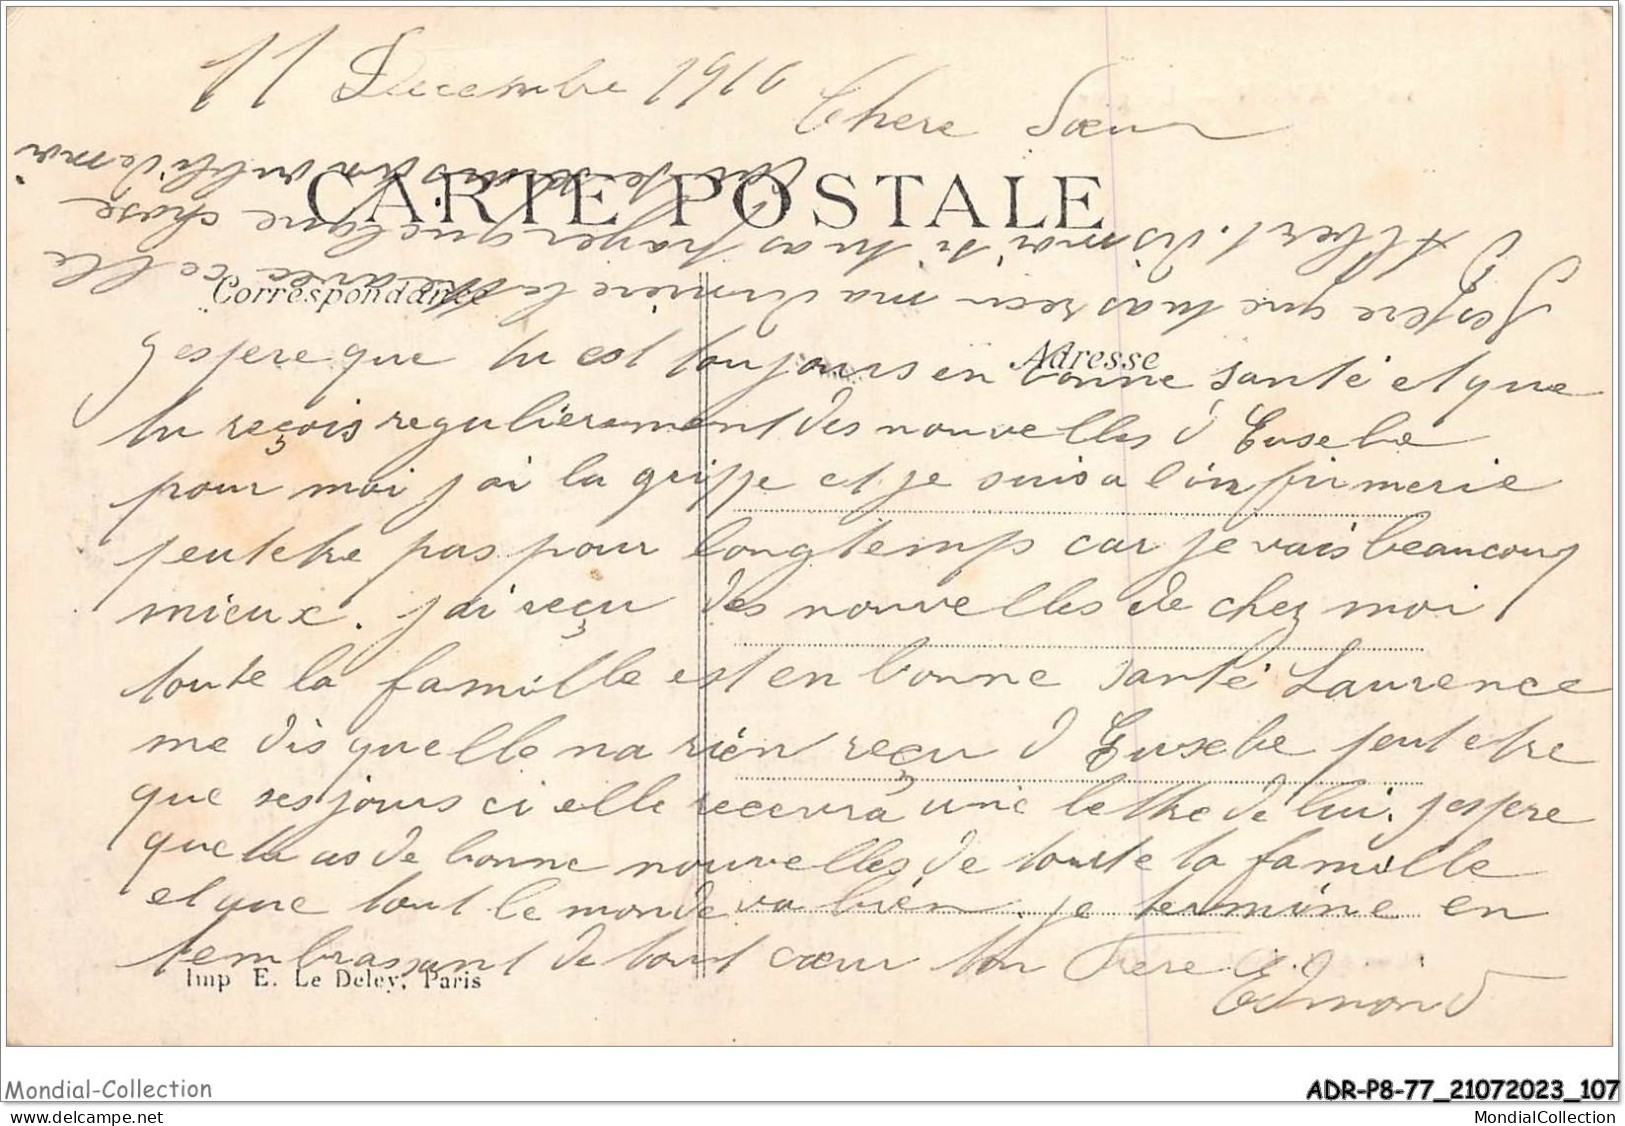 11 Decembre 1916
Chere Sœur
CARTE POSTALE
Correspondance
Adresse
J'espere que tu est toujours en bonne santé et que
tu reçois regulièrement des nouvelles d'Eusebe
pour moi j'ai la grippe et je suis a l'infirmerie
peutetre pas pour longtemps car je vais beaucoup
mieux. j'ai reçu des nouvelles de chez moi
toute la famille est en bonne santé Laurence
me dis quelle na rien reçu d'Eusebe peut etre
que ses jours ci elle recevra une lettre de lui. j'espere
que tu as de bonne nouvelles de toute ta famille
et que tout le monde va bien. je termine en
t'embrassant de tout cœur ton Frere
Edmond
J'espere que tu as reçu ma dernière lettre avec celle
d'Albert. dis moi si tu as payer quelque chose
car je serais un oubli de moi
Imp E. Le Deley, Paris
Mondial-Collection
ADR-P8-77_21072023_107
MondialCollection.be
MondialCollection